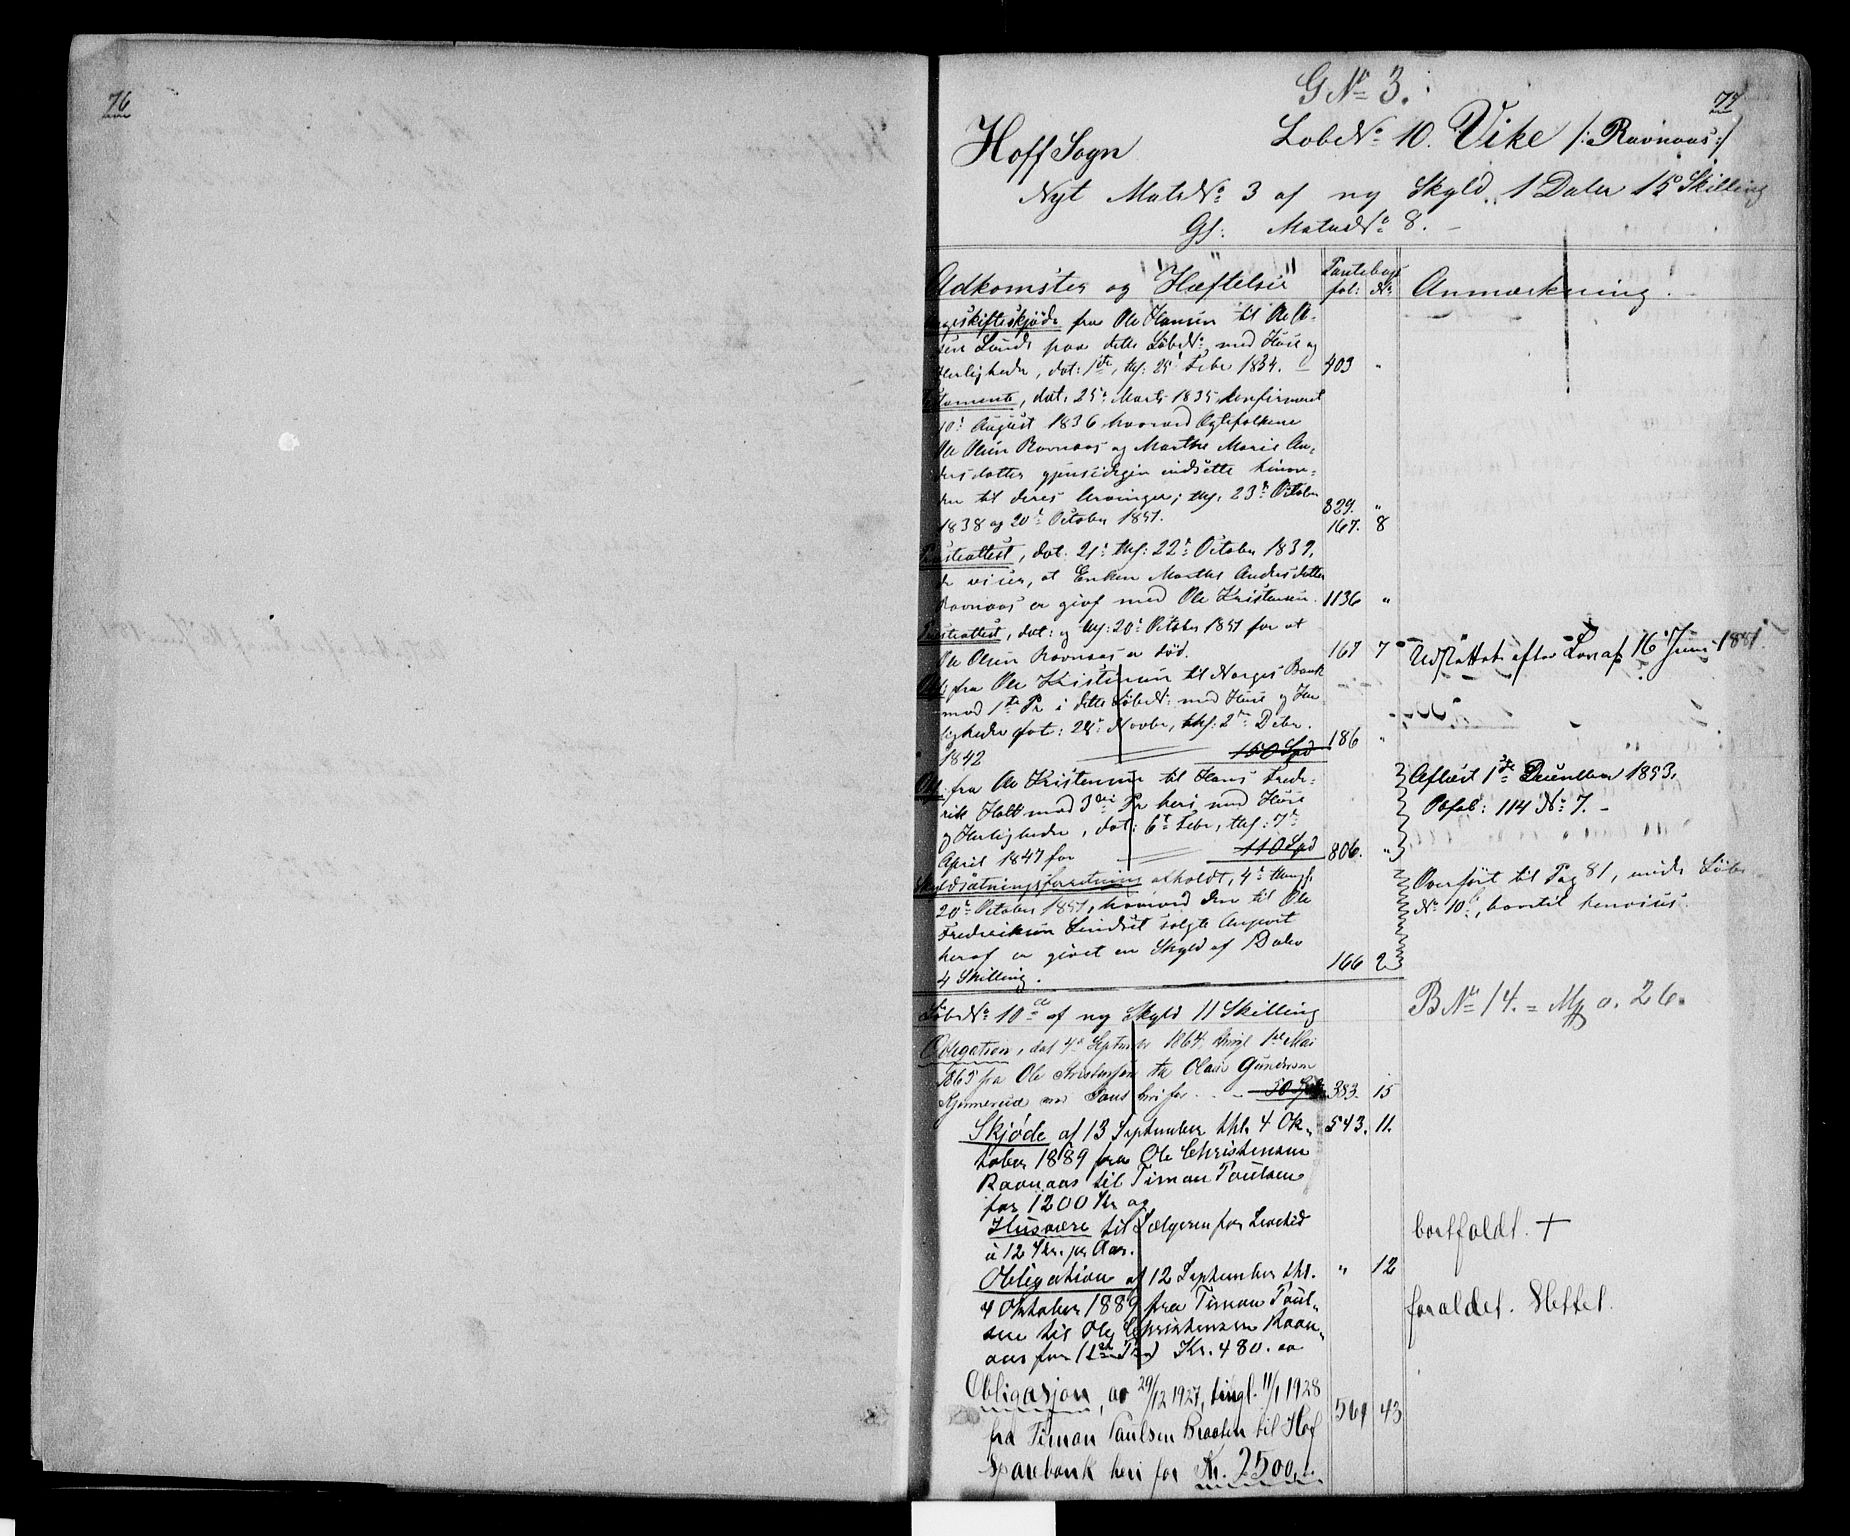 76
77
G No 3.
Hoff Sogn
Løbe No 10. Vike /: Ravnaas :/
Nyt Matr No 3 af ny Skyld 1 Daler 15 Skilling
Gl: Matr No 8. -
Adkomster og Hæftelser
Pantebogs
fol: No
Anmærkning.
geskifteskjøde fra Ole Hansen til Ole O-
sen Lunde paa dette LøbeNo med Huse og
Herligheder, dat: 1ste, thgl: 25 Febr 1834. 403 "
stamente, dat. 25 Marts 1835 konfirmeret
10 August 1836 hvorved Ægtefolkene
Ole Olsen Ravnaas og Marthe Marie An-
dersdatter gjensidigen indsætte hinan-
den til deres Arvinger; thgl. 23 October 829. "
1838 og 20 October 1851. 167. 8
Præsteattest, dat. 21 thgl: 22 October 1839,
der viser, at Enken Marthe Andersdatter
Ravnaas er givt med Ole Kristensen. 1136 "
Præsteattest, dat: og thgl: 20 October 1851 for at
Ole Olsen Ravnaas er død. 167 7
Udslettet efter Lov af 16 Juni 1851.
Obl: fra Ole Kristensen til Norges Bank
mod 1ste Pr i dette LøbeNo med Huse og Her-
ligheder dat: 24 Novbr, thgl: 2 Debr.
1842 150 Spd 186 "
Obl. fra Ole Kristensen til Hans Fred-
rik Holt mod 3die Pr heri med Huse
og Herligheder, dat: 6 Febr, thgl: 7
April 1847 for 110 Spd 806. "
Aflæst 1ste December 1853.
Pbfol: 114 No 7. -
Skyldsætningsforretning afholdt, 4 thingl.
20 October 1851, hvorved den til Ole
Fredriksen Lindset solgte Anpart
heraf er givet en Skyld af 1 Daler
4 Skilling. 166 2
Overført til Pag 81, under Løbe
No 10, hvortil henvises
Løbe No 10 a af ny Skyld 11 Skilling
B No 14. = M a. 26.
Obligation, dat 4 September 1864, tingl 1ste Mai
1865 fra Ole Kristensen til Olaus Gundersen
Kjønnerud mod Pant heri for 50 Spd 383. 15
Skjøde af 13 September thl. 4 Ok- 543. 11.
tober 1889 fra Ole Christensen
Ravnaas til Timan Poulsen
for 1200 Kr og
Husvære til Sælgeren for Livstid
à 12 Kr. pr Aar.
bortfaldt. +
Obligation af 12 September thl. " 12
4 Oktober 1889 fra Timan Poul-
sen til Ole Christensen Ravn-
aas for (1ste Pr) Kr. 480. 00
foreldet. Slettet.
Obligasjon, av 29/12 1927, tingl. 11/1 1928
fra Timan Paulsen Braaten til Hof 561 43
Sparebank heri for Kr. 2500,-